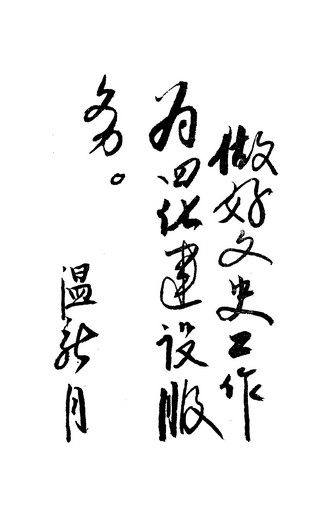 做好文史工作
为四化建设服
务。
温新月